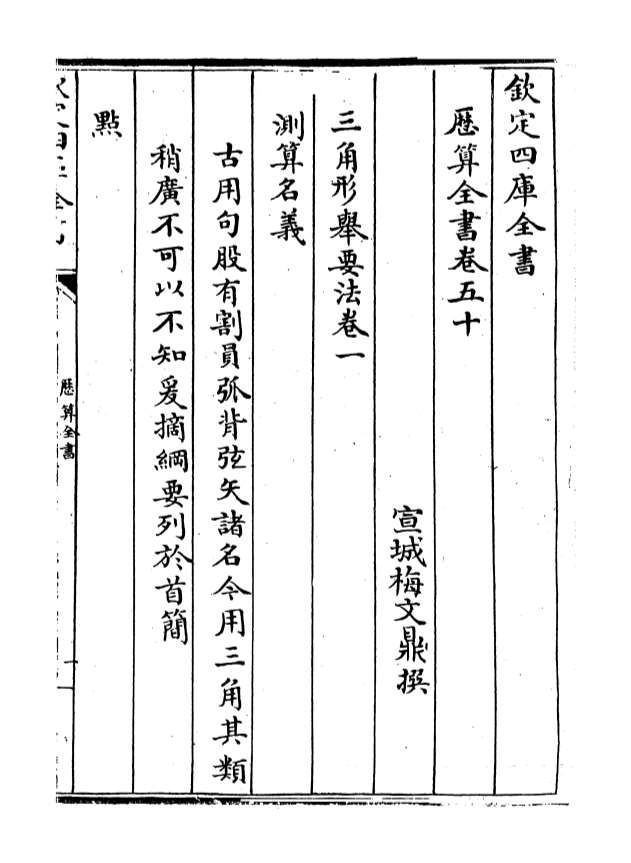 欽定四庫全書
厯算全書卷五十
宣城梅文鼎撰
三角形舉要法卷一
測算名義
古用句股有割員弧背弦矢諸名今用三角其類
稍廣不可以不知爰摘綱要列於首簡
點
厯算全書
一